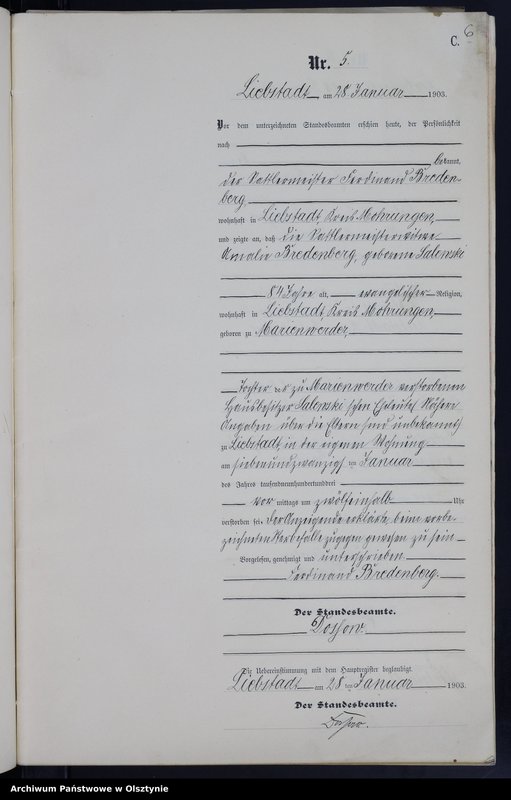 C. 6
Nr. 5.
Liebstadt am 28 Januar 1903.
Vor dem unterzeichneten Standesbeamten erschien heute, der Persönlichkeit
nach
bekannt,
der Sattlermeister Ferdinand Breden-
berg
wohnhaft in Liebstadt Kreis Mohrungen,
und zeigte an, daß die Sattlermeisterwitwe
Amalie Bredenberg, geborene Salenski
84 Jahre alt, evangelischer Religion,
wohnhaft in Liebstadt Kreis Mohrungen,
geboren zu Marienwerder,
Tochter der zu Marienwerder verstorbenen
Hausbesitzer Salenski'schen Eheleute (Nähere
Angaben über die Eltern sind unbekannt)
zu Liebstadt, in der eigenen Wohnung
am siebenundzwanzigsten Januar
des Jahres tausendneunhundertunddrei
Vor mittags um zwölfeinhalb Uhr
verstorben sei. Der Anzeigende erklärte, beim vorbe-
zeichneten Sterbefalle zugegen gewesen zu sein
Vorgelesen, genehmigt und unterschrieben
Ferdinand Bredenberg.
Der Standesbeamte.
Die Uebereinstimmung mit dem Hauptregister beglaubigt
Liebstadt am 28 ten Januar 1903.
Der Standesbeamte.
Archiwum Państwowe w Olsztynie